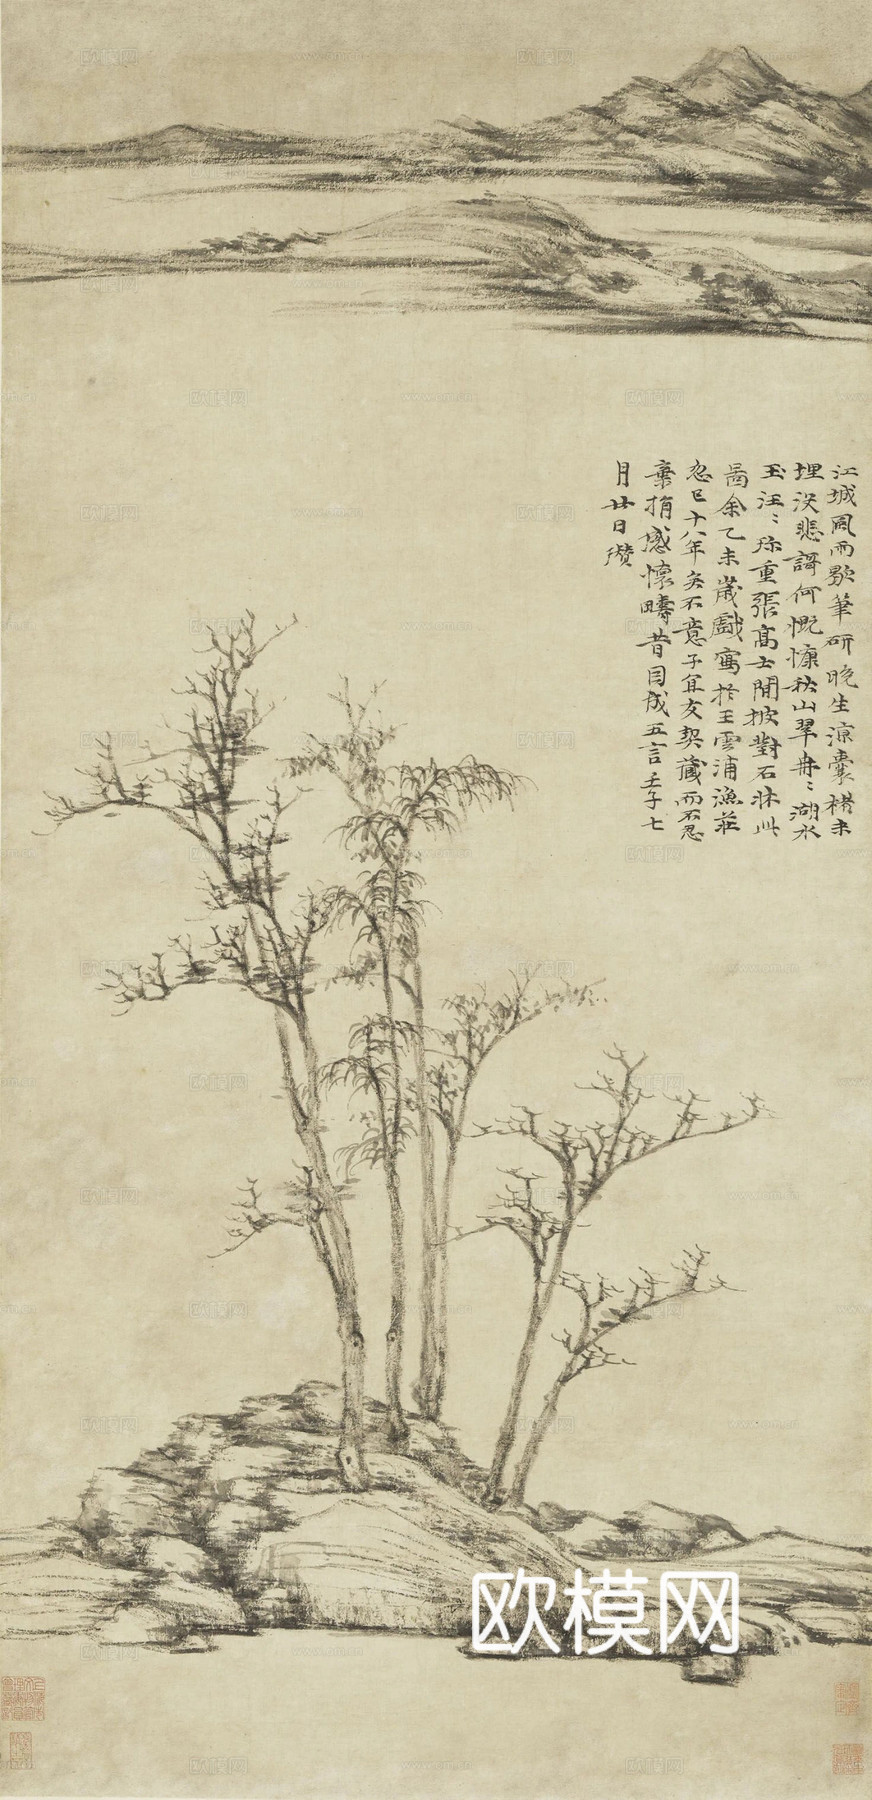 江城風雨歇筆研晚生涼囊楮未
埋没悲謌何慨慷秋山翠冉〻湖水
玉汪〻珎重張高士閒披對石牀此
圖余乙未歲戲寫於王雲浦漁莊
忽已十八年矣不意子宜友契藏而不忍
棄捐感懷疇昔因成五言壬子七
月廿日瓚
欧模网